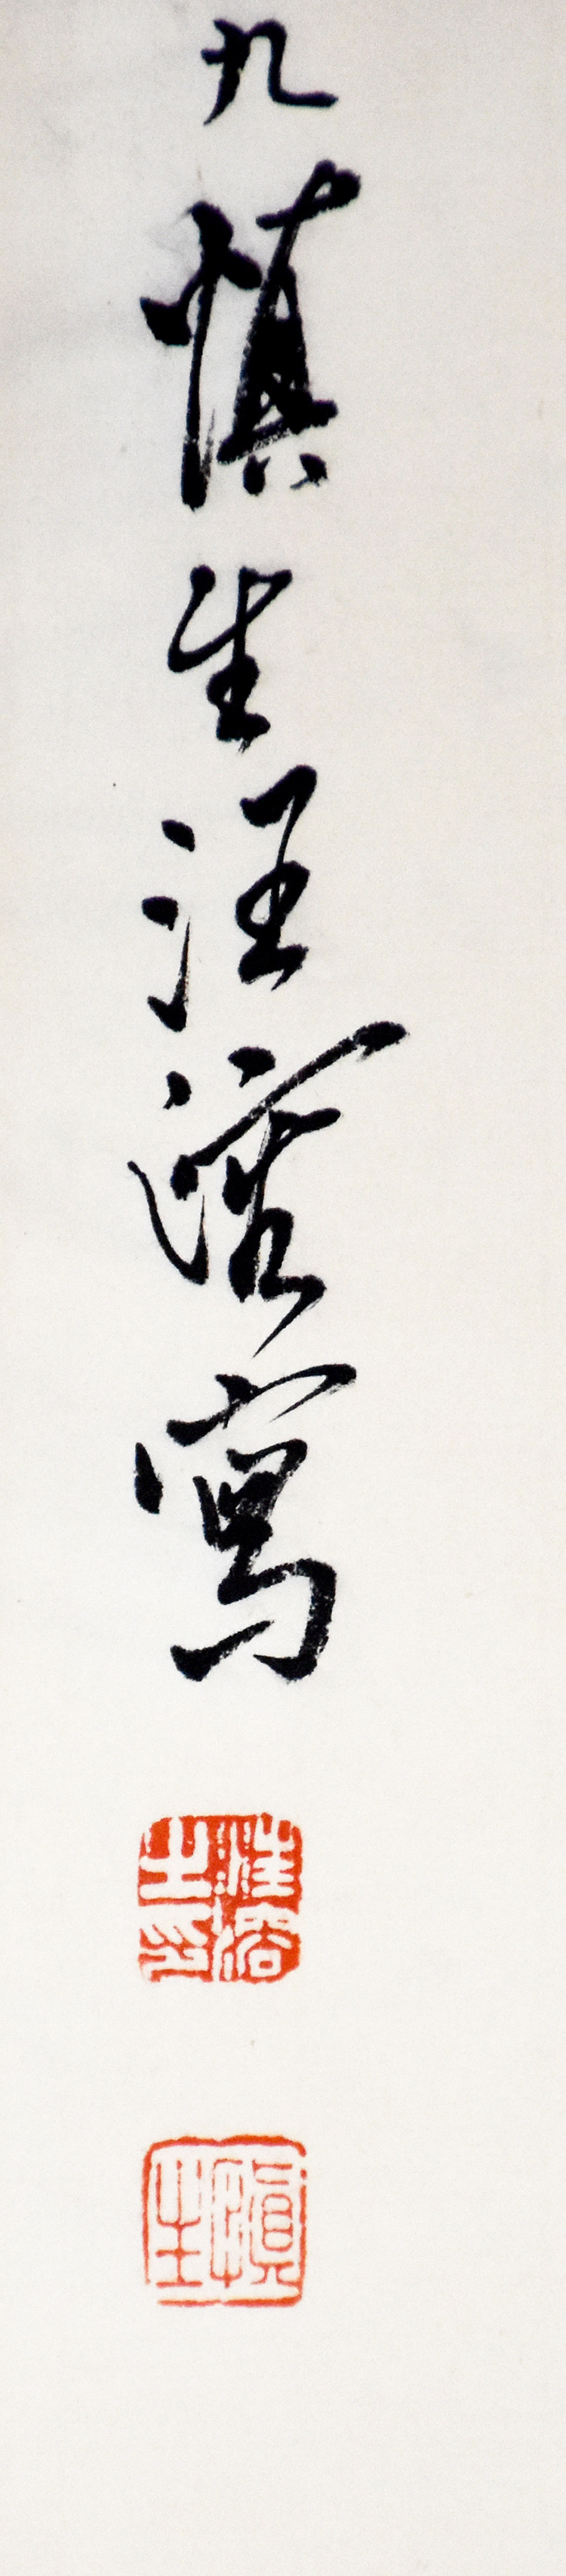 九慎生汪溶寫
汪溶之印
慎生